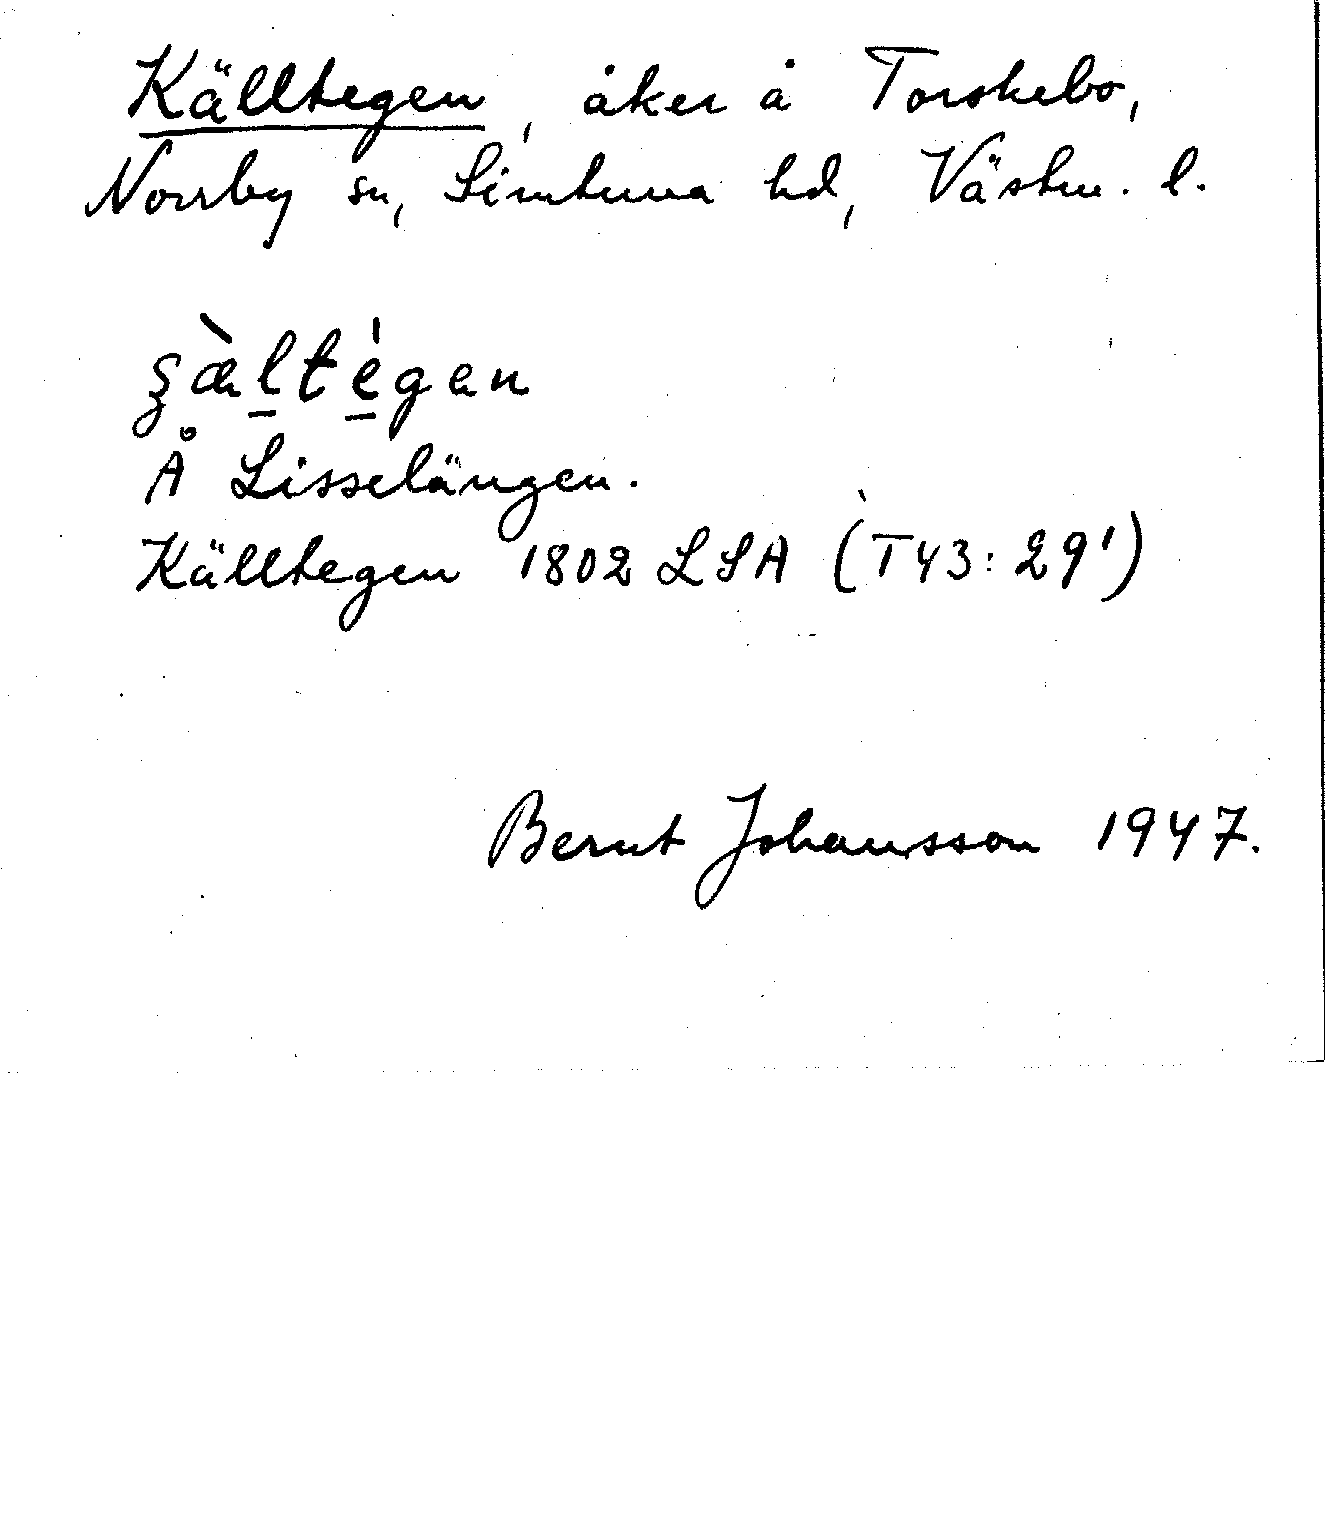 Källtegen, åker å Torskebo,
Norrby sn, Simtuna hd, Västm. l.
ʂæ̀l̲té̲gen
Å Lisselängen.
Källtegen 1802 LSA (T43:29¹)
Bernt Johansson 1947.